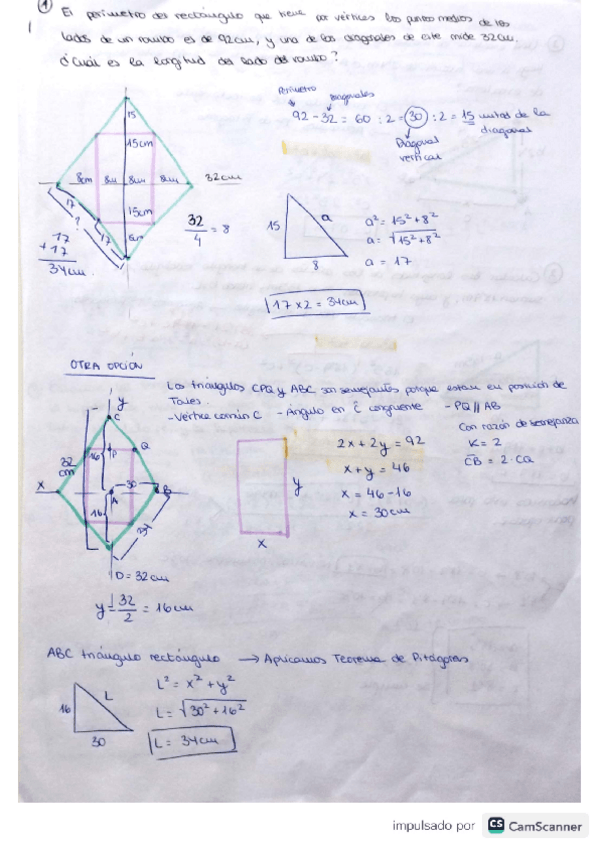 ① El perímetro del rectángulo que tiene por vértices los puntos medios de los
lados de un rombo es de 92cm, y una de las diagonales de este mide 32cm.
¿Cuál es la longitud del lado del rombo?
Perímetro
diagonales
92 - 32 = 60 : 2 = 30 : 2 = 15 mitad de la
diagonal
Diagonal
vertical
15
15cm
8cm 8cm 8cm 8cm 32cm
15cm
17
?
17
17
+ 17
34cm.
32/4 = 8
15
a
8
a² = 15² + 8²
a = √15² + 8²
a = 17
17 x 2 = 34cm
OTRA OPCIÓN
Los triángulos CPQ y ABC son semejantes porque estan en posición de
Tales.
- Vértice común C - Ángulo en Ĉ congruente - PQ // AB
Con razón de semejanza
K = 2
CB = 2·CQ
y
C
16
P
Q
32
cm
X
30
B
A
16
D = 32cm
y = 32/2 = 16cm
y
x
2x + 2y = 92
x + y = 46
x = 46 - 16
x = 30cm
ABC triángulo rectángulo → Aplicamos Teorema de Pitágoras
16
L
30
L² = x² + y²
L = √30² + 16²
L = 34cm
impulsado por CS CamScanner